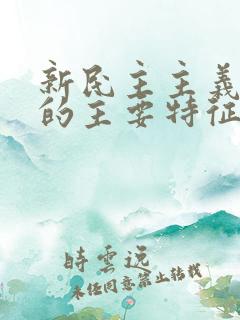 新民主主義
的主要特征
時雲远
未经同意禁止转载